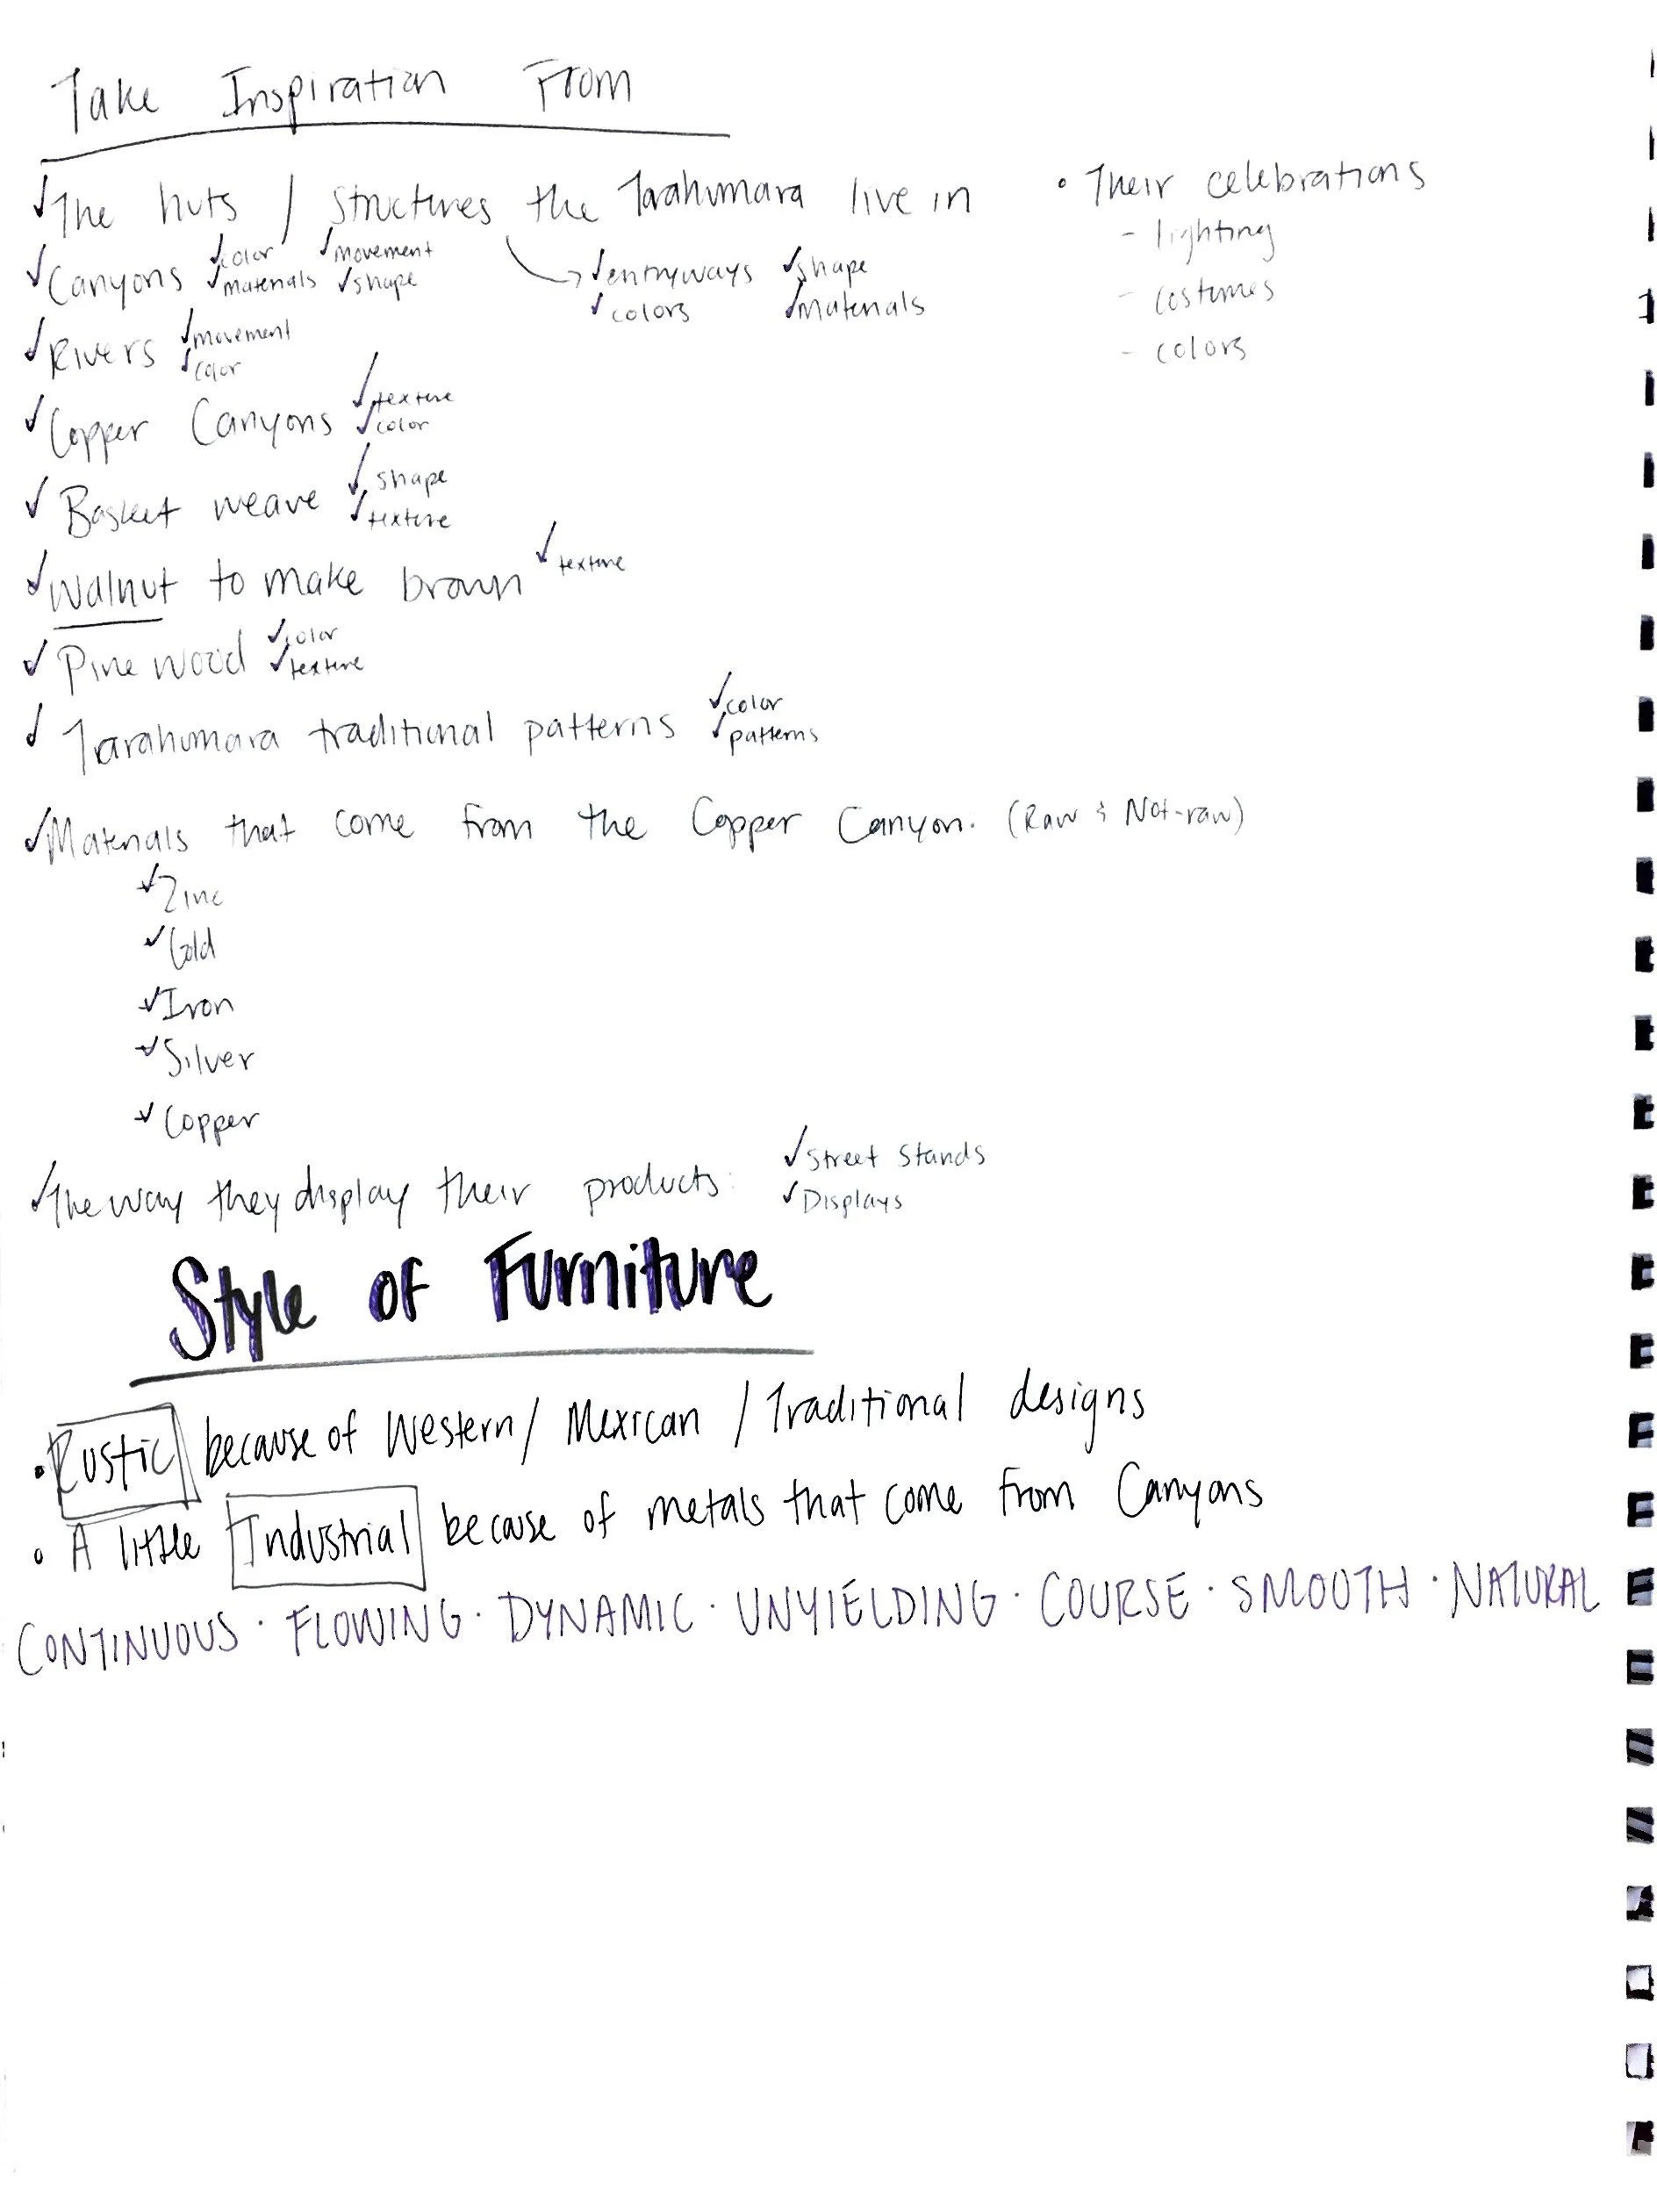 Take Inspiration From
✓The huts / structures the Tarahumara live in
✓entryways ✓shape
✓colors ✓materials
✓Canyons ✓color ✓movement
✓materials ✓shape
✓Rivers ✓movement
✓color
✓Copper Canyons ✓texture
✓color
✓Basket weave ✓shape
✓texture
✓Walnut to make brown ✓texture
✓Pine wood ✓color
✓texture
✓Tarahumara traditional patterns ✓color
✓patterns
✓Materials that come from the Copper Canyon. (Raw & Not-raw)
✓Zinc
✓Gold
✓Iron
✓Silver
✓Copper
✓The way they display their products: ✓Street Stands
✓Displays
• Their celebrations
- lighting
- costumes
- colors
Style of Furniture
• Rustic because of Western / Mexican / Traditional designs
• A little Industrial because of metals that come from Canyons
CONTINUOUS · FLOWING · DYNAMIC · UNYIELDING · COURSE · SMOOTH · NATURAL